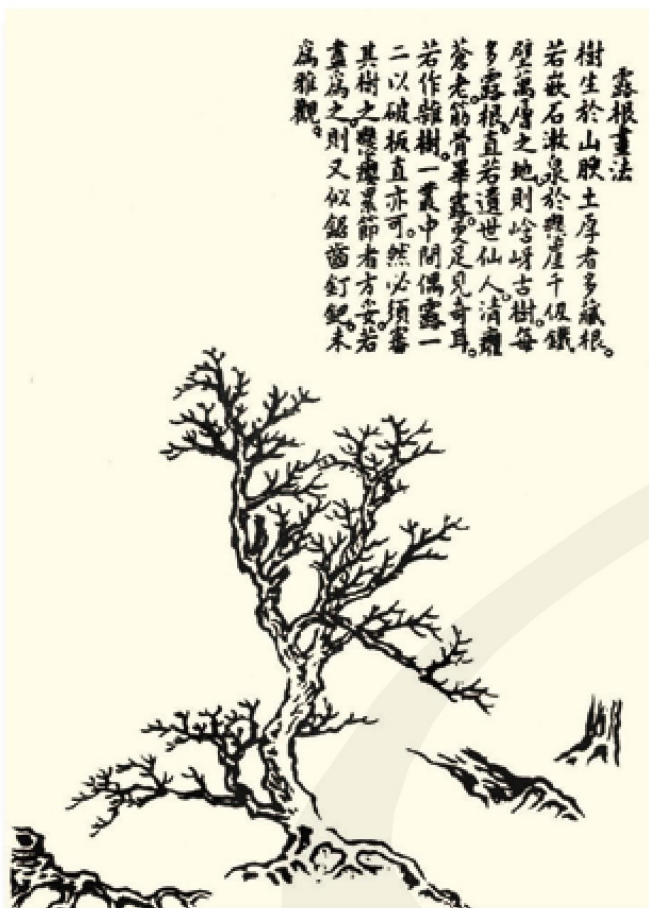 露根畫法
樹生於山腴土厚者多藏根。
若嵌石漱泉於懸崖千仞鐵
壁萬層之地。則峆岈古樹。每
多露根。直若遺世仙人。清癯
蒼老。筋骨畢露。更足見奇耳。
若作雜樹。一叢中間偶露一
二以破板直亦可。然必須審
其樹之癭累節者方妥。若
盡爲之。則又似鋸齒釘鈀。未
爲雅觀。